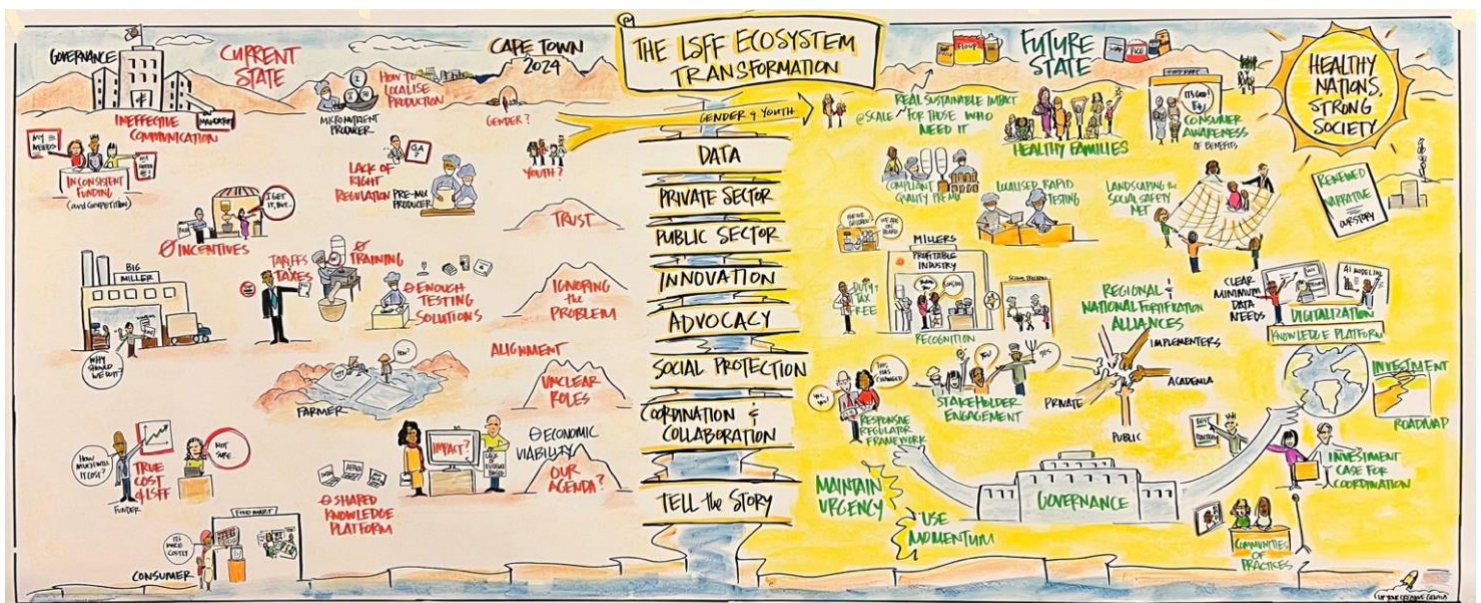 GOVERNANCE
CURRENT
STATE
CAPE TOWN
2024
INEFFECTIVE
COMMUNICATION
MY
NEEDS
INCONSISTENT
FUNDING
(and COMPETITION)
MICRONUTRIENT
PRODUCER
HOW TO
LOCALISE
PRODUCTION
GENDER?
QA?
LACK OF
RIGHT
REGULATION
PRE-MIX
PRODUCER
YOUTH?
I GET
IT, BUT...
Ø INCENTIVES
TRUST
BIG
MILLER
WHY
SHOULD
WE DO IT?
TARIFFS
TAXES
Ø
TRAINING
ENOUGH
TESTING
SOLUTIONS
IGNORING
the
PROBLEM
ALIGNMENT
UNCLEAR
ROLES
HOW?
FARMER
HOW
MUCH WILL
IT COST?
TRUE
COST
of LSFF
FUNDER
NOT
SURE
IMPACT?
ECONOMIC
VIABILITY
OUR
AGENDA?
SHARED
KNOWLEDGE
PLATFORM
FOOD MART
IT'S
MORE
COSTLY
CONSUMER
THE LSFF ECOSYSTEM
TRANSFORMATION
GENDER & YOUTH
DATA
PRIVATE SECTOR
PUBLIC SECTOR
INNOVATION
ADVOCACY
SOCIAL PROTECTION
COORDINATION &
COLLABORATION
TELL the STORY
FUTURE
STATE
FLOUR
RICE
HEALTHY
NATIONS,
STRONG
SOCIETY
REAL SUSTAINABLE IMPACT
@SCALE FOR THOSE WHO
NEED IT
HEALTHY FAMILIES
CONSUMER
AWARENESS
OF BENEFITS
COMPLIANT
QUALITY PREMIX
LOCALISED RAPID
TESTING
LANDSCAPING the
SOCIAL SAFETY
NET
RENEWED
NARRATIVE
OUR STORY
MILLERS
PROFITABLE
INDUSTRY
DUTY +
TAX
FREE
RECOGNITION
REGIONAL &
NATIONAL FORTIFICATION
ALLIANCES
IMPLEMENTERS
ACADEMIA
PRIVATE
PUBLIC
CLEAR
MINIMUM
DATA
NEEDS
AI MODELING
DIGITALIZATION
KNOWLEDGE PLATFORM
THIS
HAS
CHANGED
RESPONSIVE
REGULATOR
FRAMEWORK
YES!
STAKEHOLDER
ENGAGEMENT
INVESTMENT
ROADMAP
INVESTMENT
CASE FOR
COORDINATION
MAINTAIN
URGENCY
USE
MOMENTUM
GOVERNANCE
COMMUNITIES
OF
PRACTICES